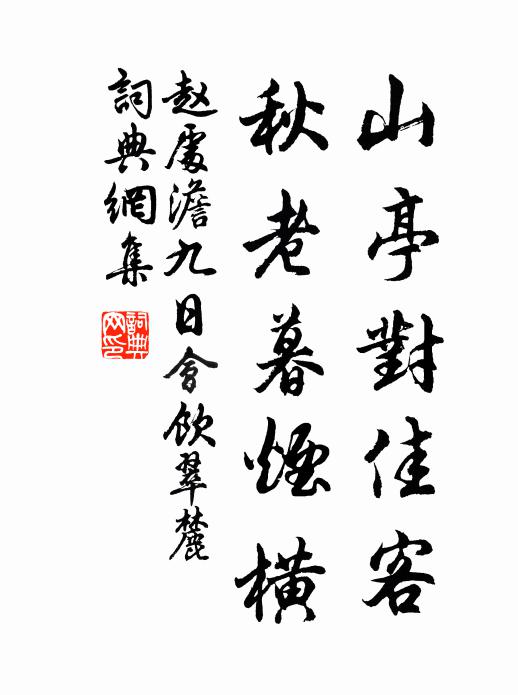 山亭對佳客
秋老暮煙橫
赵處澹九日會飲翠麓
詞典網集
詞典網印